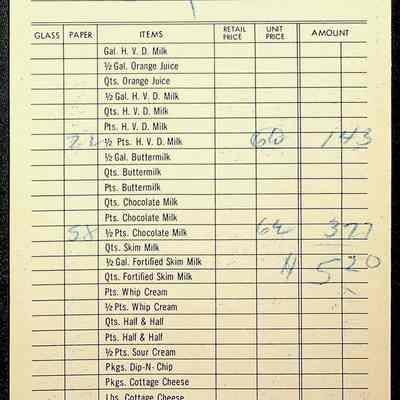 GLASS PAPER ITEMS RETAIL PRICE UNIT PRICE AMOUNT
Gal. H. V. D. Milk
½ Gal. Orange Juice
Qts. Orange Juice
½ Gal. H. V. D. Milk
Qts. H. V. D. Milk
Pts. H. V. D. Milk
22 ½ Pts. H. V. D. Milk 143
½ Gal. Buttermilk
Qts. Buttermilk
Pts. Buttermilk
Qts. Chocolate Milk
Pts. Chocolate Milk
58 ½ Pts. Chocolate Milk 377
Qts. Skim Milk
½ Gal. Fortified Skim Milk 520
Qts. Fortified Skim Milk
Pts. Whip Cream
½ Pts. Whip Cream
Qts. Half & Half
Pts. Half & Half
½ Pts. Sour Cream
Pkgs. Dip-N-Chip
Pkgs. Cottage Cheese
Lbs. Cottage Cheese